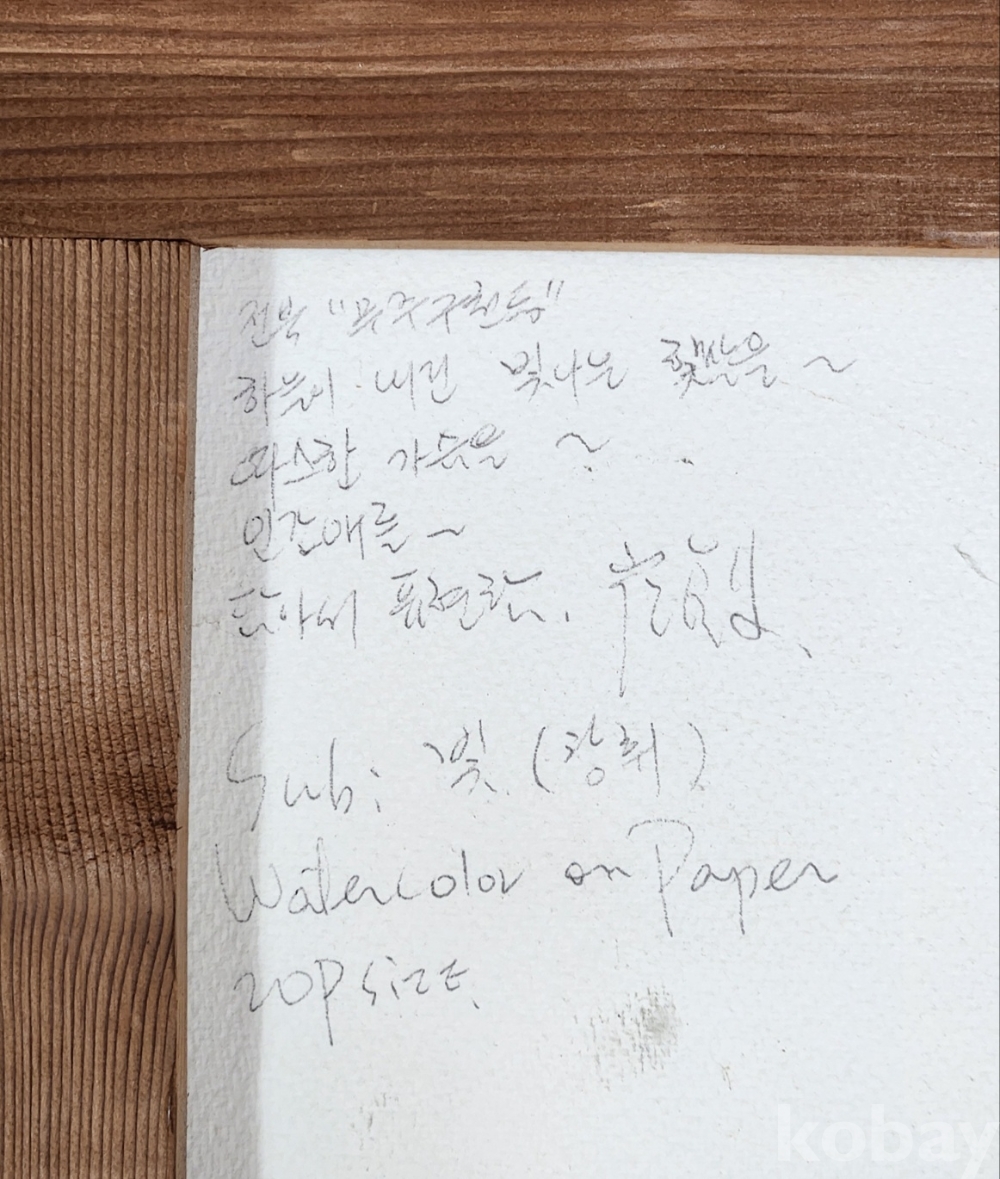 전북 "무주구천동"
하늘이 내린 빛나는 햇살을 ~
따스한 가슴을 ~
인간애를 ~
담아서 표현함.
Sub: 빛 (창취)
Watercolor on Paper
20P size.
kobay